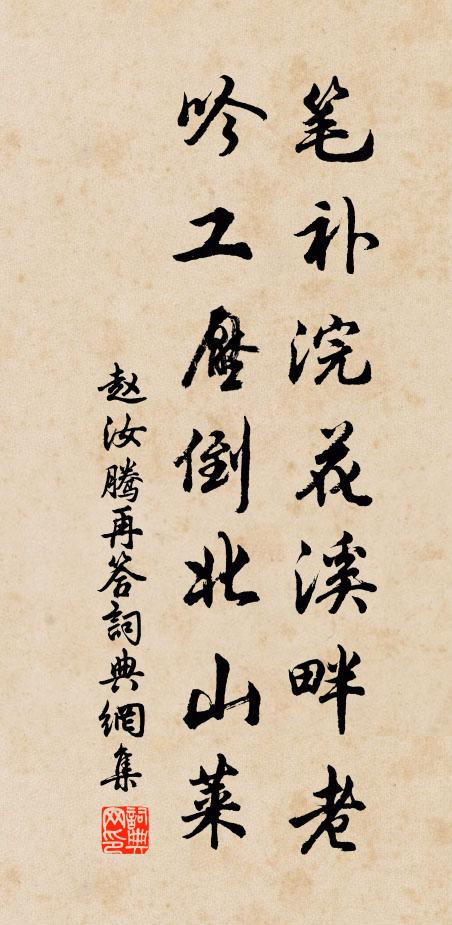 笔补浣花溪畔老
吟工壓倒北山莱
赵汝腾再答詞典網集
詞典网印